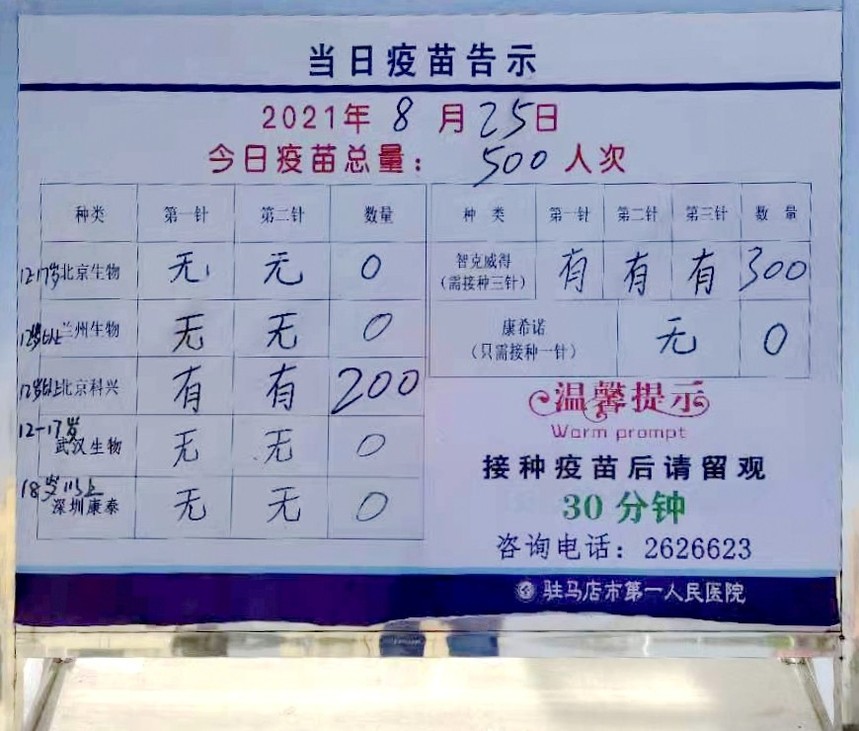 当日疫苗告示
2021年 8 月 25 日
今日疫苗总量： 500 人次
种类 第一针 第二针 数量
12-17岁 北京生物 无 无 0
12岁以上 兰州生物 无 无 0
12岁以上 北京科兴 有 有 200
12-17岁 武汉生物 无 无 0
18岁以上 深圳康泰 无 无 0
种 类 第一针 第二针 第三针 数 量
智克威得 有 有 有 300
(需接种三针)
康希诺 无 0
(只需接种一针)
温馨提示
Warm prompt
接种疫苗后请留观
30 分钟
咨询电话：2626623
驻马店市第一人民医院